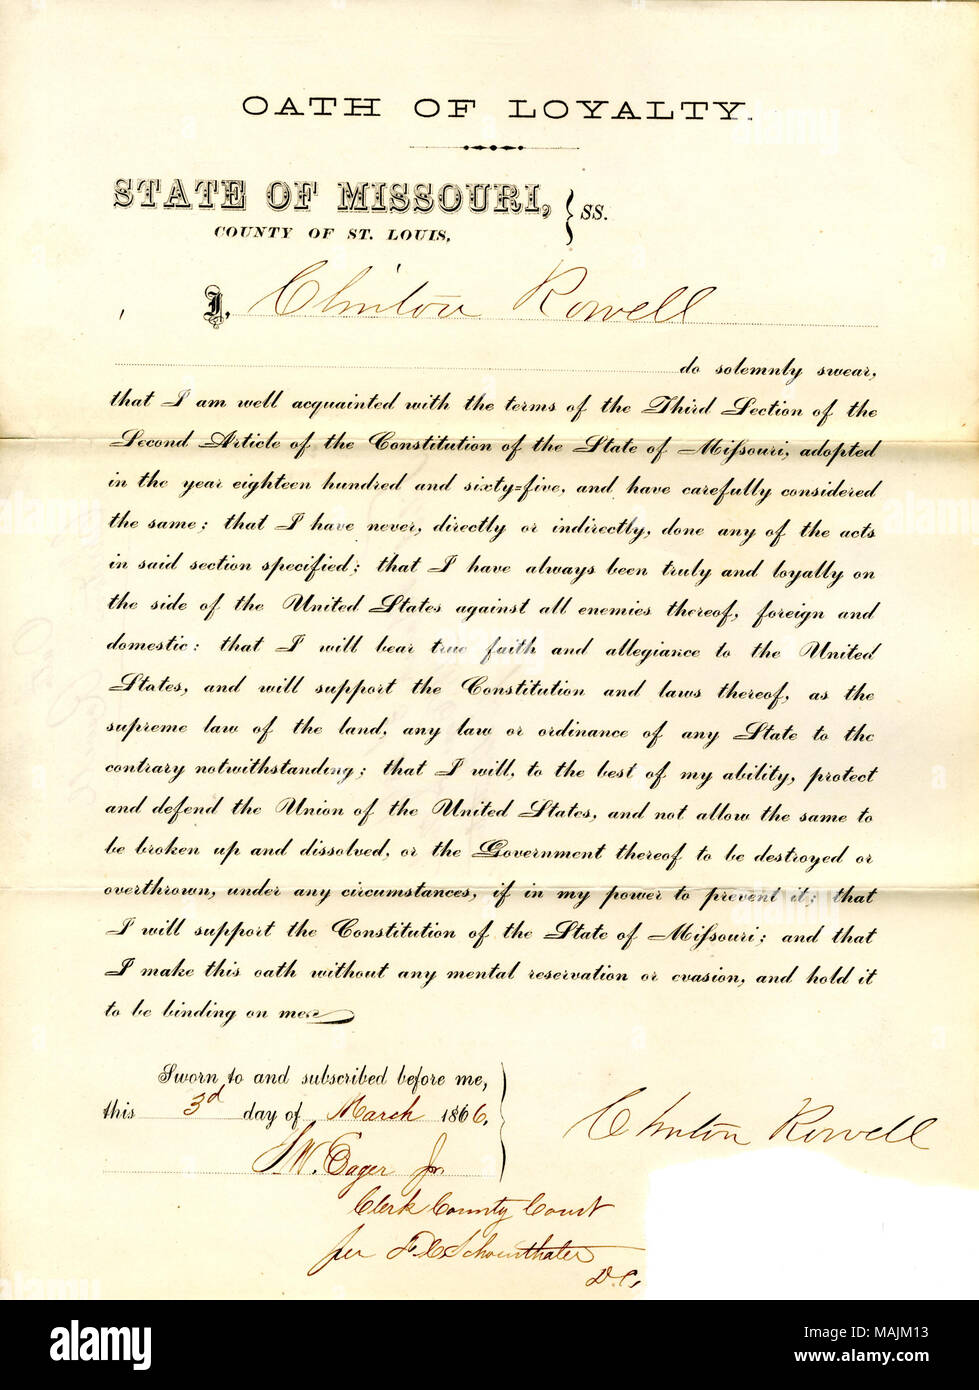 OATH OF LOYALTY.
STATE OF MISSOURI,
COUNTY OF ST. LOUIS,
} SS.
I, Clinton Rowell
do solemnly swear,
that I am well acquainted with the terms of the Third Section of the
Second Article of the Constitution of the State of Mifsouri, adopted
in the year eighteen hundred and sixty=five, and have carefully considered
the same; that I have never, directly or indirectly, done any of the acts
in said section specified; that I have always been truly and loyally on
the side of the United States against all enemies thereof, foreign and
domestic: that I will bear true faith and allegiance to the United
States, and will support the Constitution and laws thereof, as the
supreme law of the land, any law or ordinance of any State to the
contrary notwithstanding; that I will, to the best of my ability, protect
and defend the Union of the United States, and not allow the same to
be broken up and dissolved, or the Government thereof to be destroyed or
overthrown, under any circumstances, if in my power to prevent it; that
I will support the Constitution of the State of Mifsouri; and that
I make this oath without any mental reservation or evasion, and hold it
to be binding on me.
Sworn to and subscribed before me,
this 3d day of March 1866.
Clinton Rowell
W. Eager Jr
Clerk County Court
per F. C. Schoenthaler
D.C.
alamy
Image ID: MAJM13
www.alamy.com